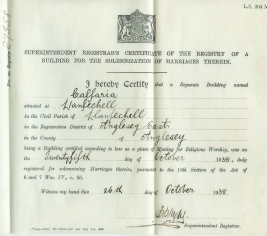 L.S. 204
SUPERINTENDENT REGISTRAR'S CERTIFICATE OF THE REGISTRY OF A
BUILDING FOR THE SOLEMNIZATION OF MARRIAGES THEREIN.
I hereby Certify that a Separate Building named
Calfaria
situated at Llanfechell
in the Civil Parish of Llanfechell
in the Registration District of Anglesey East
in the County of Anglesey
being a Building certified according to law as a place of Meeting for Religious Worship, was on
the Twentyfifth day of October 1938, duly
registered for solemnizing Marriages therein, pursuant to the 18th Section of the Act of
6 and 7 Wm. IV., c. 85.
Witness my hand this 26th day of October 1938
Superintendent Registrar.